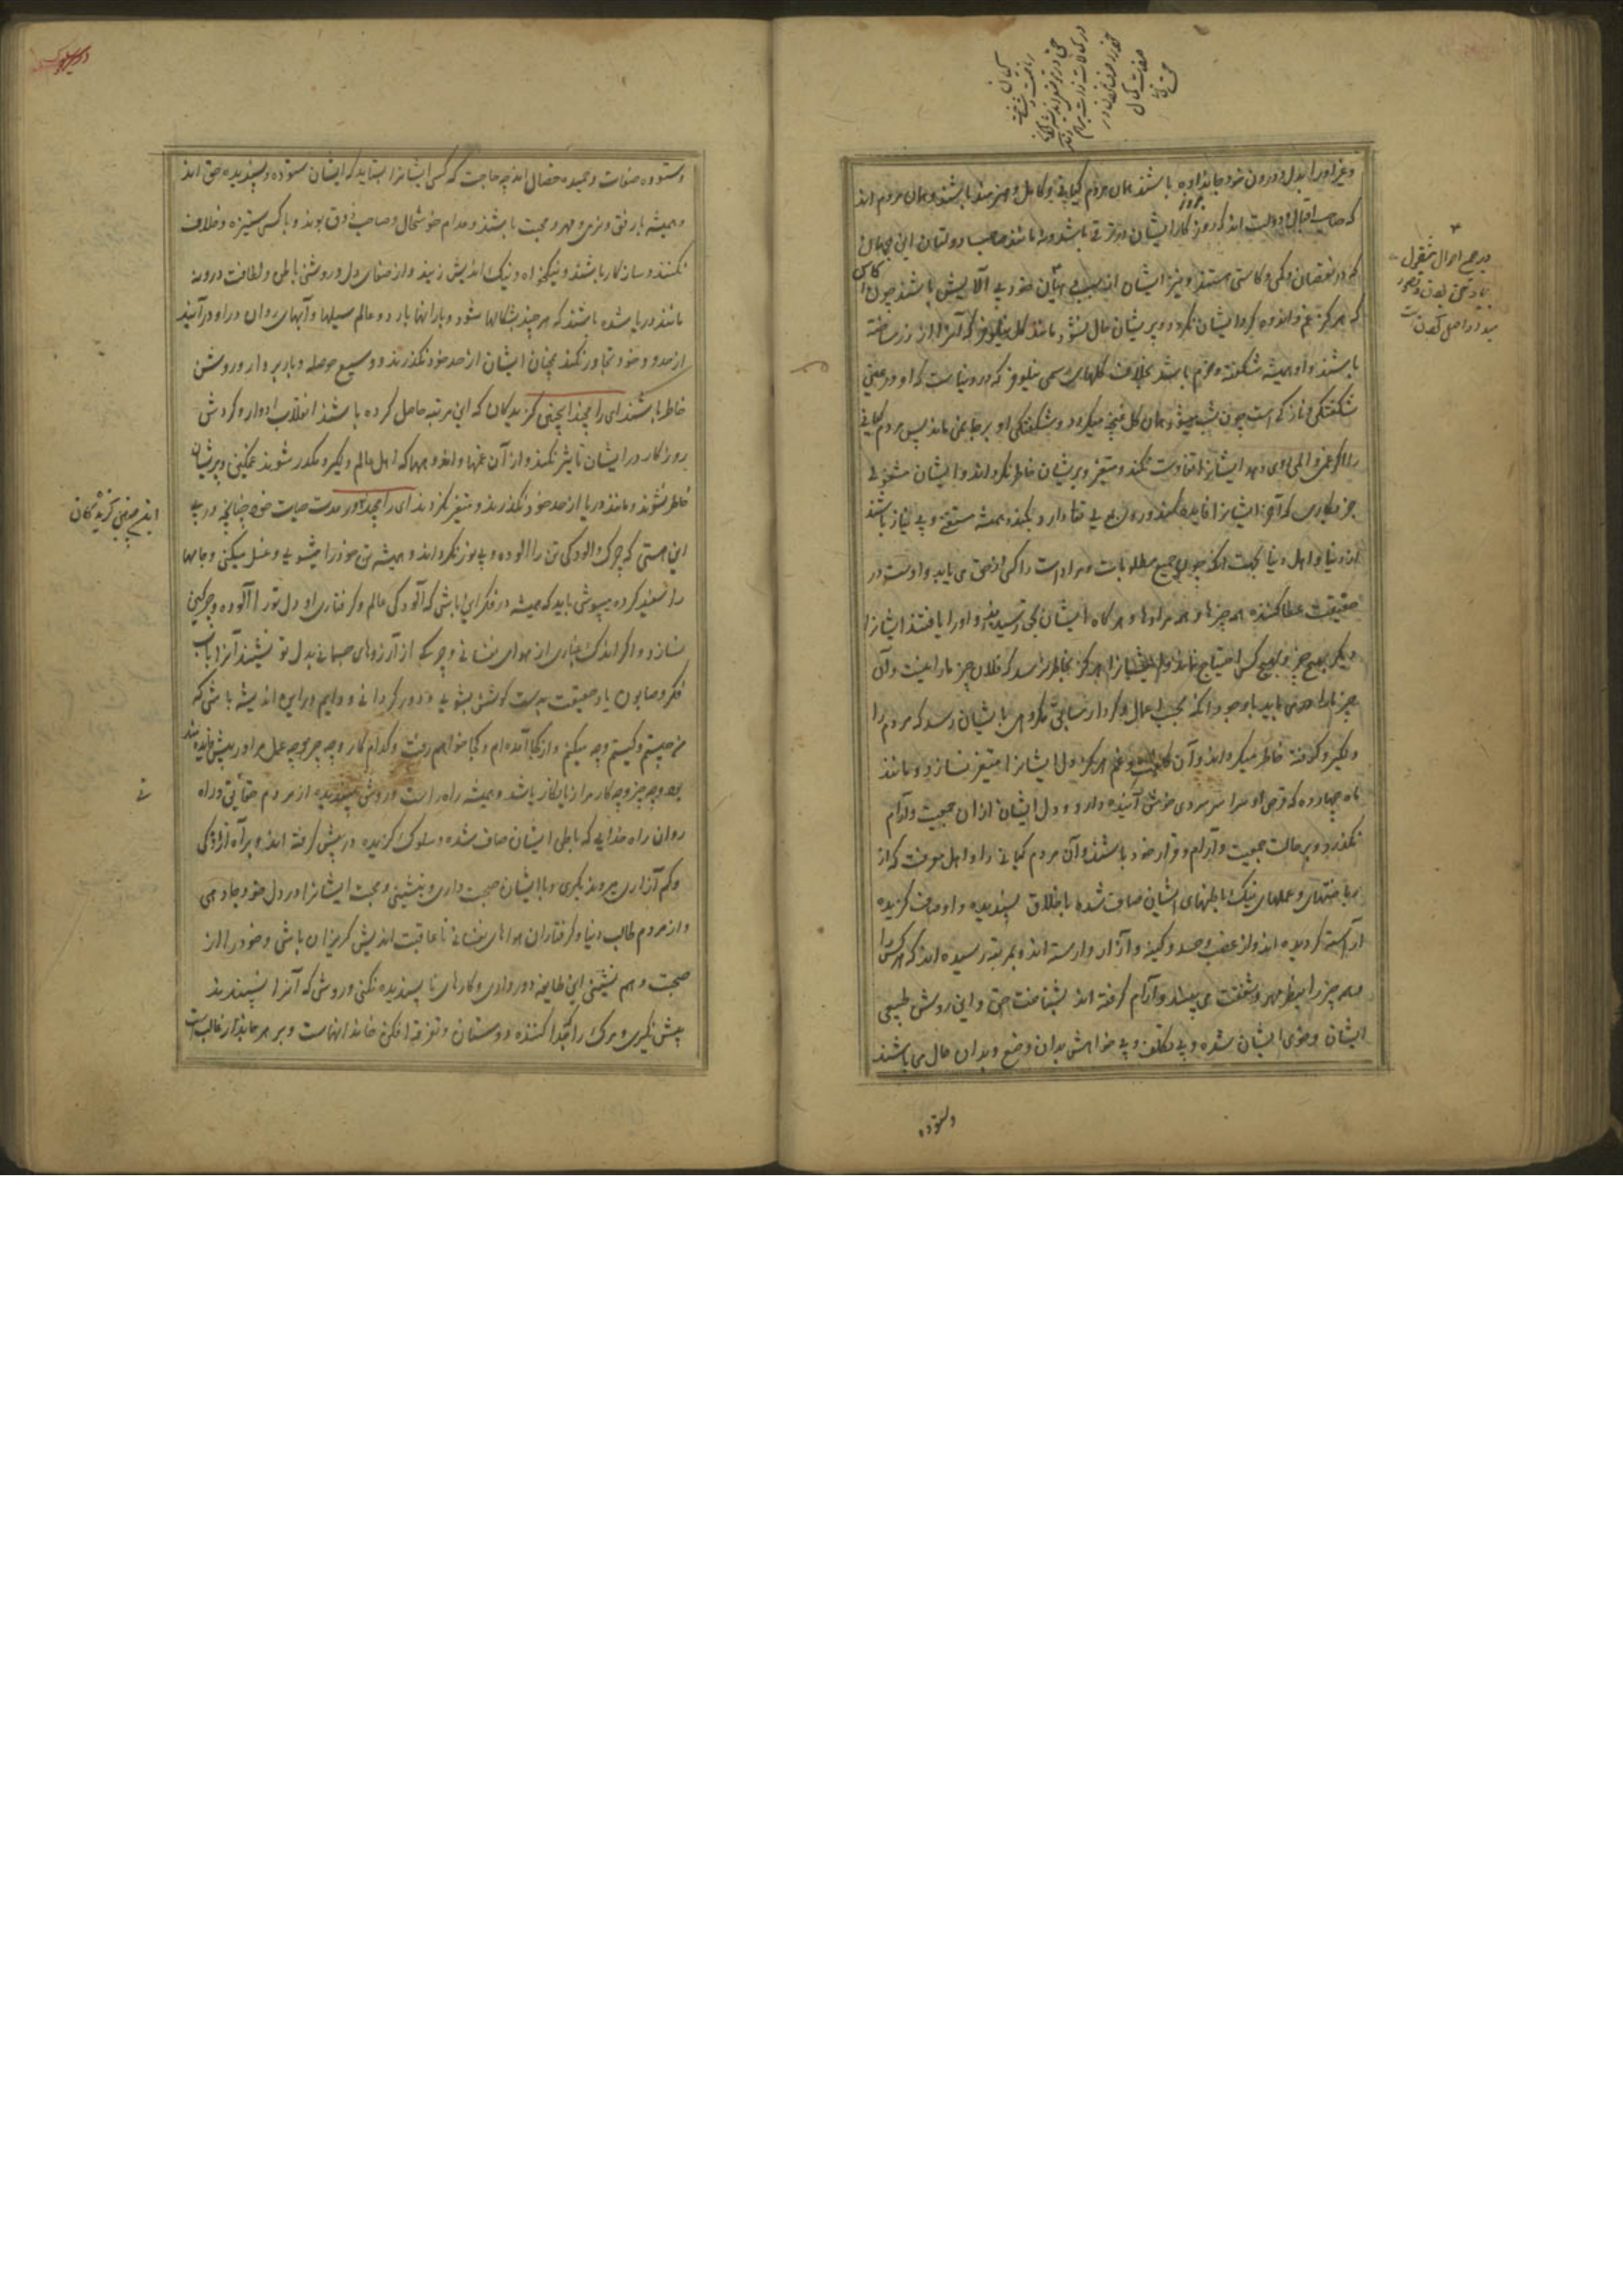 و غیر او را بدل و درون خود جا نداده باشند همان مردم کیانی و کامل و هنرمند باشند و همان مردم اند
که صاحب اقبال و دولت اند که روز بروز کار ایشان در ترقی باشد و نه مانند صاحب دولتان این جهان
که در نقصان و کمی و کاستی هستند و نیز ایشان از بی آلایش باشند چون
که هرگز غم و اندوه گرد ایشان نگردد و پریشان حال نشود مانند گل نیلوفر که آنرا از زر ساخته
باشند و او همیشه شکفته و خرم باشد بخلاف گلهای رسمی نیلوفر که در دنیاست که او در عین
شکفتگی و نازکی است چون شب میشود همان گل غنچه میگردد و شکفتگی او بر جا نمی ماند پس مردم کیانی
را اگر غم و المی روی دهد ایشانرا تفاوت نکند و متغیر و پریشان خاطر نگرداند و ایشان مشغولی
جز بکاری که آخر ایشانرا فایده کند و همیشه مستغنی و بی نیاز باشند
از دنیا و اهل دنیا بجهت آنکه چون جمیع مطلوبات و مرادات را کسی از حق می یابد و اوست در
حقیقت عطا کننده همه چیزها و همه مرادها و هرگاه ایشان بحق رسیدند و او را یافتند ایشانرا
دیگر بهیچ چیز و بهیچ کس احتیاج نماند و ایشانرا هرگز بخاطر نرسد که فلان چیز ما را نیست و آن
چیز ما را می باید با وجود آنکه بحسب اعمال و کردار سابق مکروهی بایشان رسد که مردم را
دلگیر و گرفته خاطر میگرداند و آن و غم هرگز دل ایشانرا متغیر نسازد و مانند
ماه چهارده که قرص او سراسر سردی خوش آینده دارد و دل ایشان از آن جمعیت و آرام
نگذرد و بر حالت جمعیت و آرام و قرار خود باشند و آن مردم کیانی دل و اهل معرفت که از
ریاضتهای و عملهای نیک باطنهای ایشان صاف شده باخلاق پسندیده و اوصاف گزیده
آراسته گردیده اند و از غضب و حسد و کینه و آزار وارسته اند و بمرتبه رسیده اند که هرکس را
و هر چیز را بنظر مهر و شفقت می بینند و آرام گرفته اند بشناخت حق و این روش طبیعی
ایشان و خوی ایشان شده و بی تکلف و بی خواهش بدان وضع و بدان حال می باشند
وستوده
وستوده صفات و حمیده خصال اند چه حاجت که کس ایشانرا بستاید که ایشان ستوده و پسندیده حق اند
و همیشه با رفق و نرمی و مهر و محبت باشند و مدام خوشحال و صاحب ذوق بوند و با کسی ستیزه و خلاف
نکنند و سازگار باشند و نیکخواه و نیک اندیش زیند و از صفای دل و روشنی باطن و لطافت درونه
مانند دریا شده باشند که هر چند بشکالها شود و بارانها بارد و عالم سیلها و آبهای روان در او درآیند
از حدود خود تجاوز نکند همچنان ایشان از حد خود نگذرند و وسیع حوصله و باربردار و روشن
خاطر باشند ای رامچند اینچنین گزیدگان که این مرتبه حاصل کرده باشند انقلاب ادوار و گردش
روزگار در ایشان تاثیر نکند و از آن غمها و اندوهها که اهل عالم دلگیر و مکدر شوند غمگین و پریشان
خاطر نشوند و مانند دریا از حد خود نگذرند و متغیر نگردند ای رامچند در مدت حیات خود چنانچه در پی
این هستی که چرک و آلودگی تن را آلوده و بی نور نگرداند و همیشه تن خود را میشویی و غسل میکنی و جامها
را سفید کرده میپوشی باید که همیشه در فکر این باشی که آلودگی عالم و گرفتاری او دل تو را آلوده و چرکین
نسازد و اگر اندک غباری از هوای نفسانی و چرکی از آرزوهای جسمانی بدل تو نشیند آنرا باب
فکر و صابون یاد حقیقت بدست کوشش بشویی و دور گردانی و دایم در این اندیشه باشی که
من چیستم و کیستم و چه میکنم و از کجا آمده ام و کجا خواهم رفت و کدام کار و چه چیز و چه عمل مرا در پیش فایده مند
بود و چه چیز و چه کار مرا زیانکار باشد و همیشه راه راست و روش پسندیده از مردم حقانی و راه
روان راه خدایی که باطن ایشان صاف شده و سلوک گزیده در پیش گرفته اند و براه آزادگی
و کم آزاری میروند بگیری و با ایشان صحبت داری و بنشینی و محبت ایشانرا در دل خود جا دهی
و از مردم طالب دنیا و گرفتاران هواهای نفسانی ناعاقبت اندیش گریزان باشی و خود را از
صحبت و هم نشینی این طایفه دور داری و کارهای ناپسندیده نکنی و روشی که آنرا نپسندیدند
پیش نگیری و مرگ را که جدا کننده دوستان و تفرقه افکن خاندانهاست و بر هر جاندار غالب است
اینچنین گزیدگان